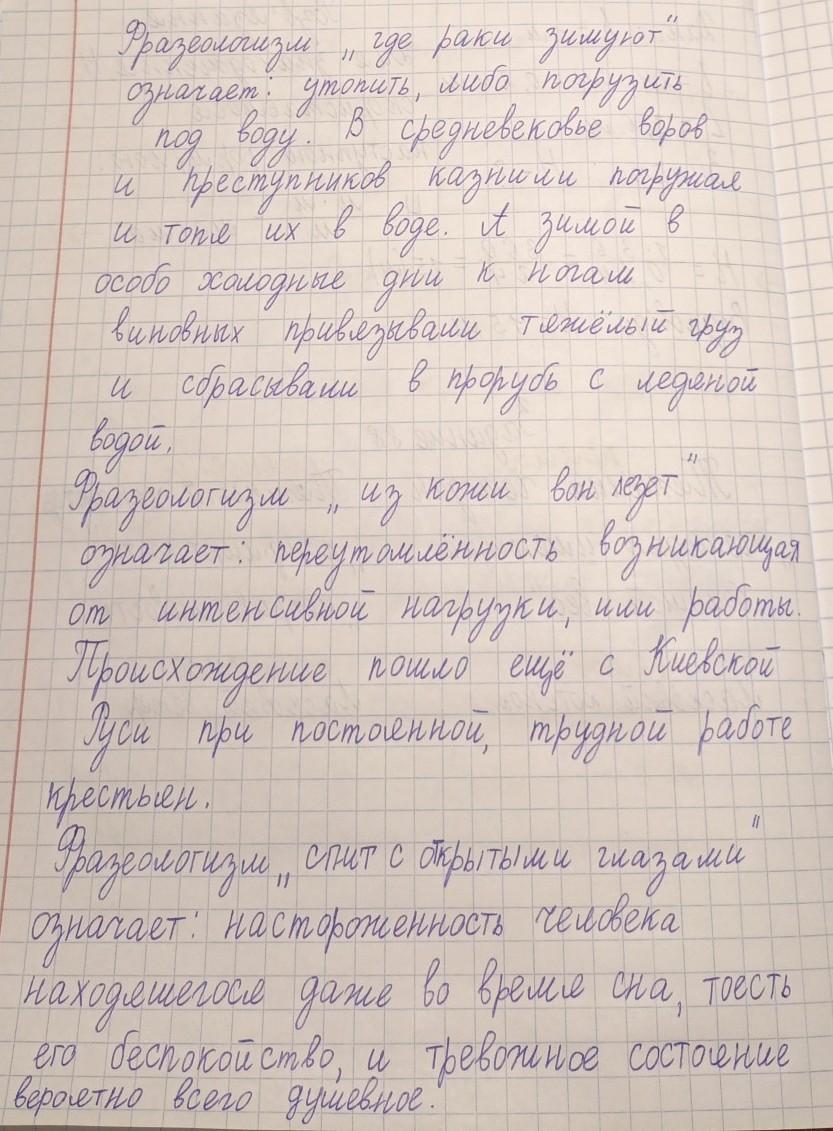 Фразеологизм „где раки зимуют"
означает: утопить, либо погрузить
под воду. В средневековье воров
и преступников казнили погружая
и топя их в воде. А зимой в
особо холодные дни к ногам
виновных привязывали тяжёлый груз
и сбрасывали в прорубь с леденой
водой.
Фразеологизм „из кожи вон лезет"
означает: переутомлённость возникающая
от интенсивной нагрузки, или работы.
Происхождение пошло ещё с Киевской
Руси при постоянной, трудной работе
крестьян.
Фразеологизм „спит с открытыми глазами"
означает: настороженность человека
находяшегося даже во время сна, тоесть
его беспокойство, и тревожное состояние
вероятно всего душевное.